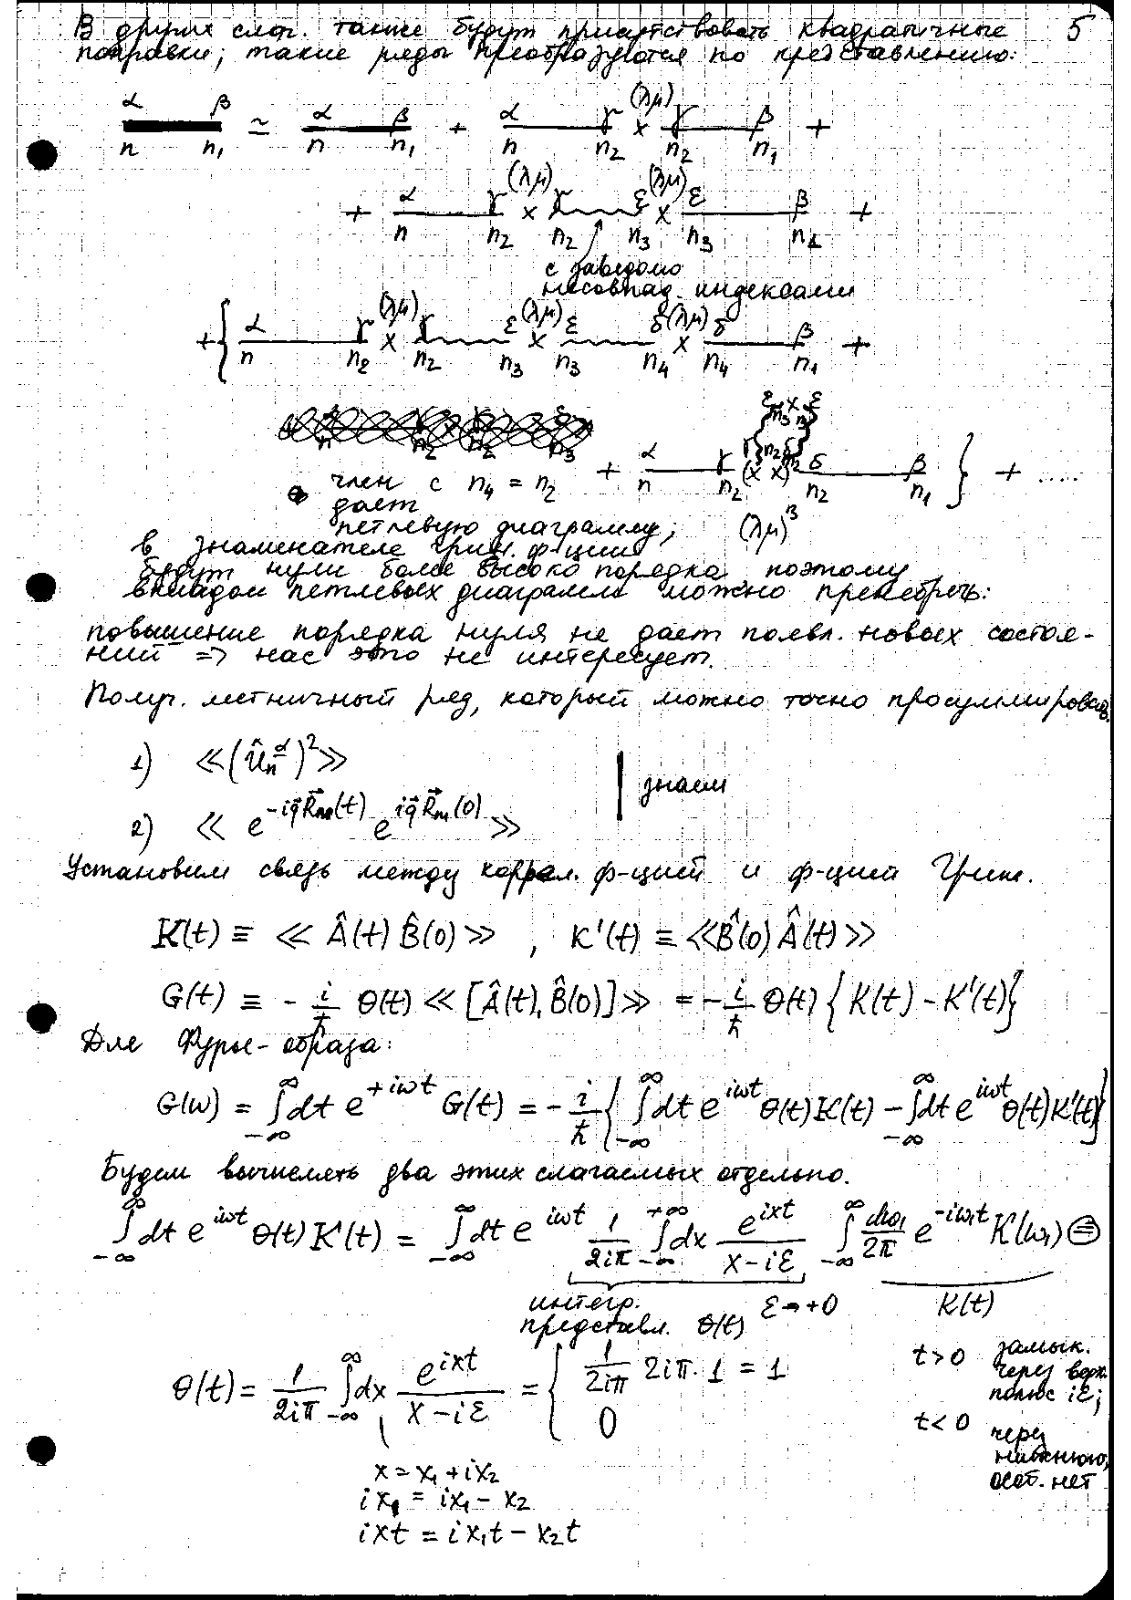 В других слаг. также будут присутствовать квадратичные 5
поправки; такие ряды преобразуются по представлению:
α β α β α γ (λμ) γ β
≃ + × +
n n₁ n n₁ n n₂ n₂ n₁
α γ (λμ) γ ε (λμ) ε β
+ × × +
n n₂ n₂ n₃ n₃ n₁
с заведомо
несовпад. индексами
α γ (λμ) γ ε (λμ) ε δ (λμ) δ β
+ { × × × +
n n₂ n₂ n₃ n₃ n₄ n₄ n₁
ε × ε
n₃ n₃
α γ γ n₂ δ n₂ δ β
+ (× ×) } + .....
n n₂ n₂ n₁
член с n₄ = n₂
дает
петлевую диаграмму; (λμ)³
в знаменателе грин. ф-ции
будут нули более высоко порядка, поэтому
вкладом петлевых диаграмм можно пренебречь:
повышение порядка нуля не дает появл. новых состоя-
ний ⇒ нас это не интересует.
Получ. лестничный ряд, который можно точно просуммировать.
1) ≪(û_n^α)²≫
знаем
2) ≪ e^{-iq⃗R⃗(t)} e^{iq⃗R⃗(0)} ≫
Установим связь между коррел. ф-цией и ф-цией Грина.
K(t) ≡ ≪ Â(t) B̂(0) ≫ , K'(t) ≡ ≪B̂(0) Â(t)≫
G(t) ≡ - i/ħ θ(t) ≪ [Â(t), B̂(0)] ≫ = - i/ħ θ(t) { K(t) - K'(t)}
Для Фурье-образа:
G(ω) = ∫_{-∞}^{∞} dt e^{+iωt} G(t) = - i/ħ { ∫_{-∞}^{∞} dt e^{iωt} θ(t) K(t) - ∫_{-∞}^{∞} dt e^{iωt} θ(t) K'(t)}
Будем вычислять два этих слагаемых отдельно.
∫_{-∞}^{∞} dt e^{iωt} θ(t) K(t) = ∫_{-∞}^{∞} dt e^{iωt} 1/2iπ ∫_{-∞}^{+∞} dx e^{ixt}/(x-iε) ∫_{-∞}^{∞} dω₁/2π e^{-iω₁t} K(ω₁) ⊜
интегр. ε→+0 K(t)
представл. θ(t)
θ(t) = 1/2iπ ∫_{-∞}^{∞} dx e^{ixt}/(x-iε) = { 1/2iπ 2iπ·1 = 1 t>0 замык.
через верх.
полюс iε;
0 t<0 через
нижнюю,
особ. нет
x = x₁ + ix₂
ix = ix₁ - x₂
ixt = ix₁t - x₂t